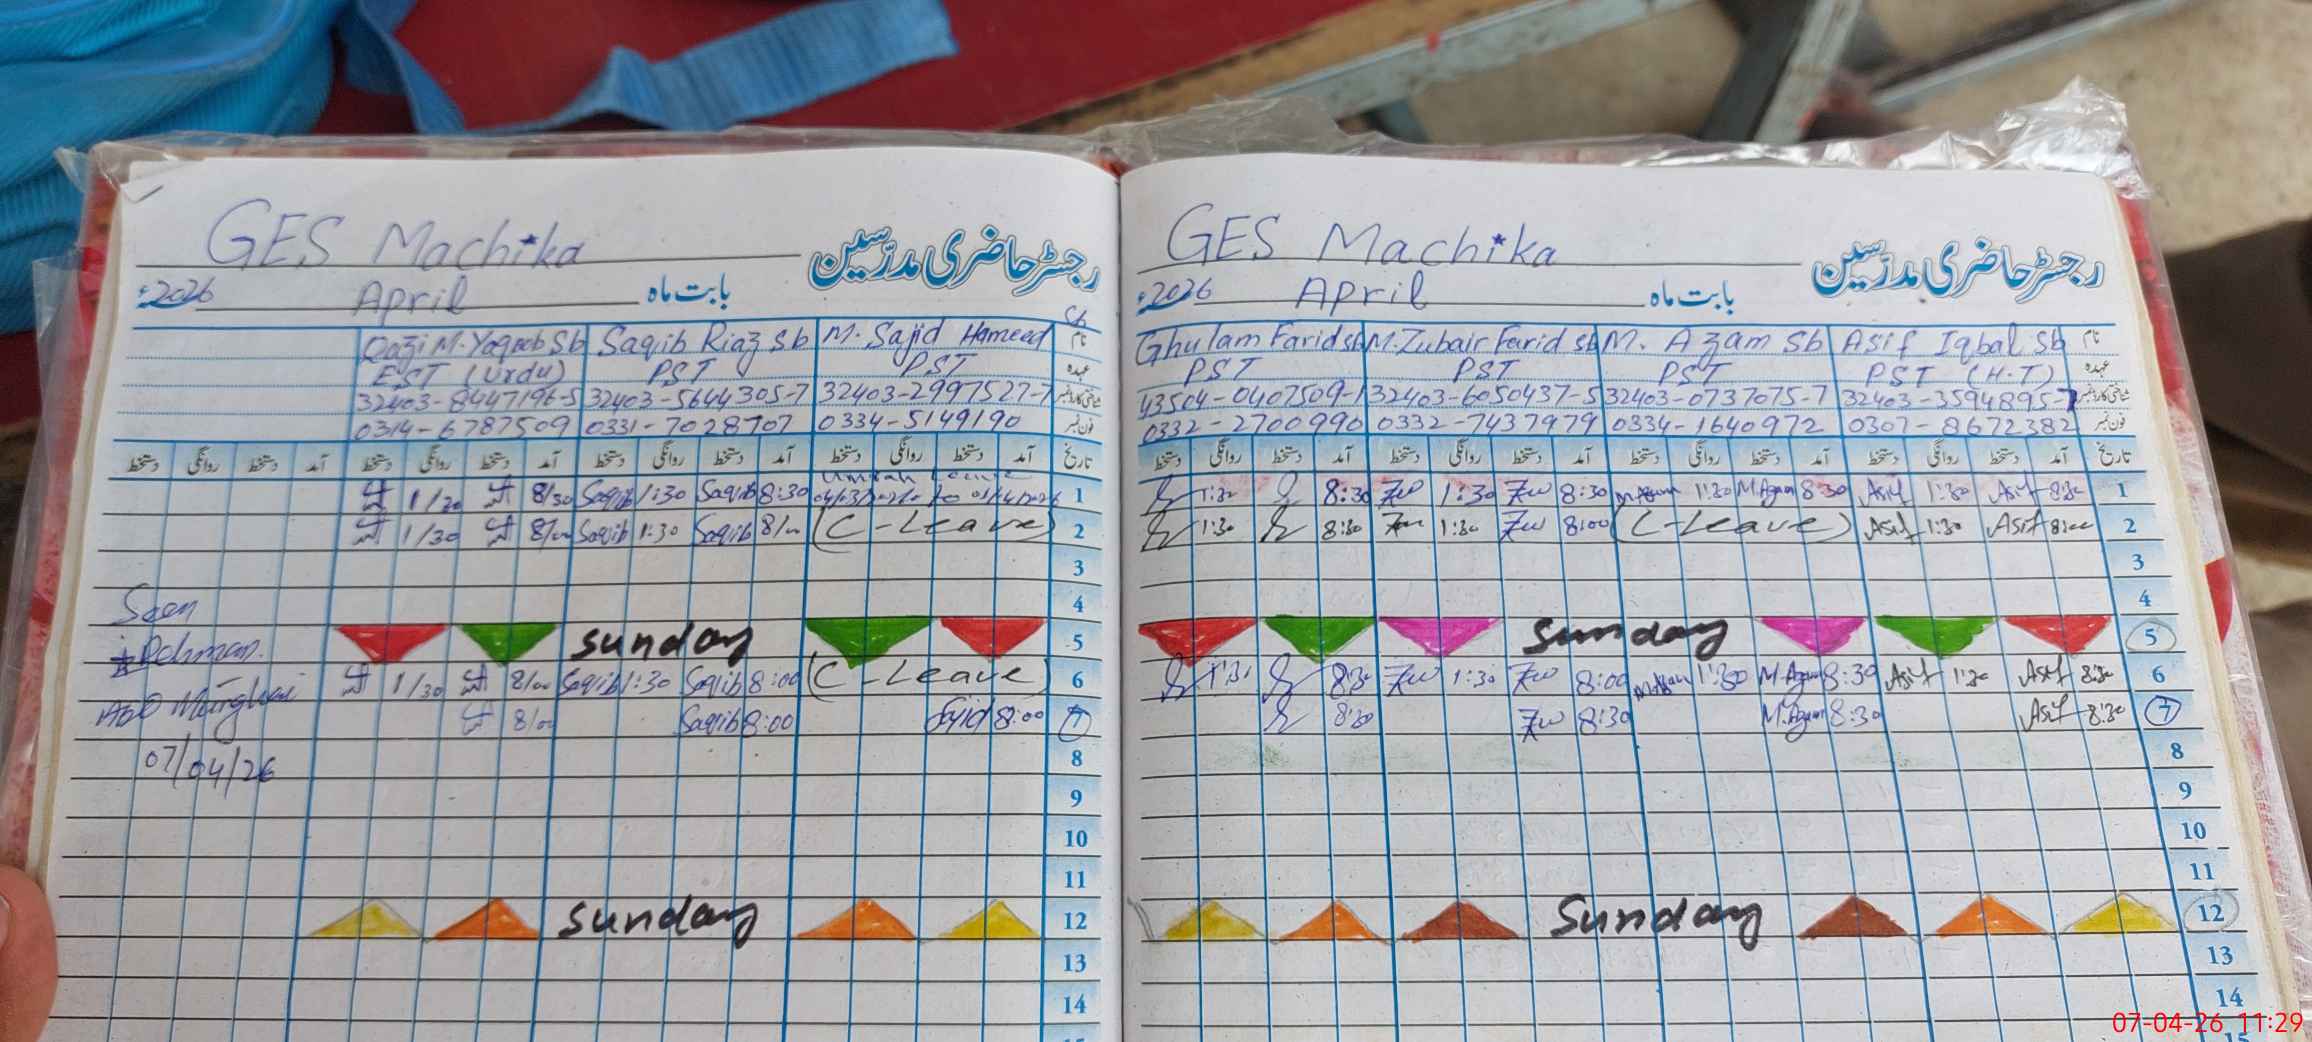 GES Machika
رجسٹر حاضری مدرّسین
بابت ماہ April 2026ء
نام
Qazi M. Yaqoob Sb Saqib Riaz Sb M. Sajid Hameed Sb
عہدہ
EST (Urdu) PST PST
شناختی کارڈ نمبر
32403-8447196-5 32403-5644305-7 32403-2997527-7
فون نمبر
0314-6787509 0331-7028707 0334-5149190
تاریخ آمد دستخط روانگی دستخط آمد دستخط روانگی دستخط آمد دستخط روانگی دستخط آمد دستخط روانگی دستخط
1 1/30 8/30 Saqib 1:30 Saqib 8:30 Umrah Leave
2 1/30 8/00 Saqib 1:30 Saqib 8/00 (C-Leave)
3
4
5 Sunday
6 1/30 8/00 Saqib 1:30 Saqib 8:00 (C-Leave)
7 8/00 Saqib 8:00 Sajid 8:00
8
9
10
11
12 Sunday
13
14
15
Seen
Rehman
07/04/26
GES Machika
رجسٹر حاضری مدرّسین
بابت ماہ April 2026ء
نام
Ghulam Farid Sb M. Zubair Farid Sb M. Azam Sb Asif Iqbal Sb
عہدہ
PST PST PST PST (H.T)
شناختی کارڈ نمبر
43504-0407509-1 32403-6050437-5 32403-0737075-7 32403-3594895-7
فون نمبر
0332-2700990 0332-7437979 0334-1640972 0307-8672382
تاریخ آمد دستخط روانگی دستخط آمد دستخط روانگی دستخط آمد دستخط روانگی دستخط آمد دستخط روانگی دستخط
1 1:30 8:30 1:30 8:30 M.Azam 1:30 M.Azam 8:30 Asif 1:30 Asif 8:30
2 1:30 8:30 1:30 8:00 (C-Leave) Asif 1:30 Asif 8:00
3
4
5 Sunday
6 1:30 8:30 1:30 8:00 M.Azam 1:30 M.Azam 8:30 Asif 1:30 Asif 8:30
7 8:30 8:30 M.Azam 8:30 Asif 8:30
8
9
10
11
12 Sunday
13
14
15
07-04-26 11:29